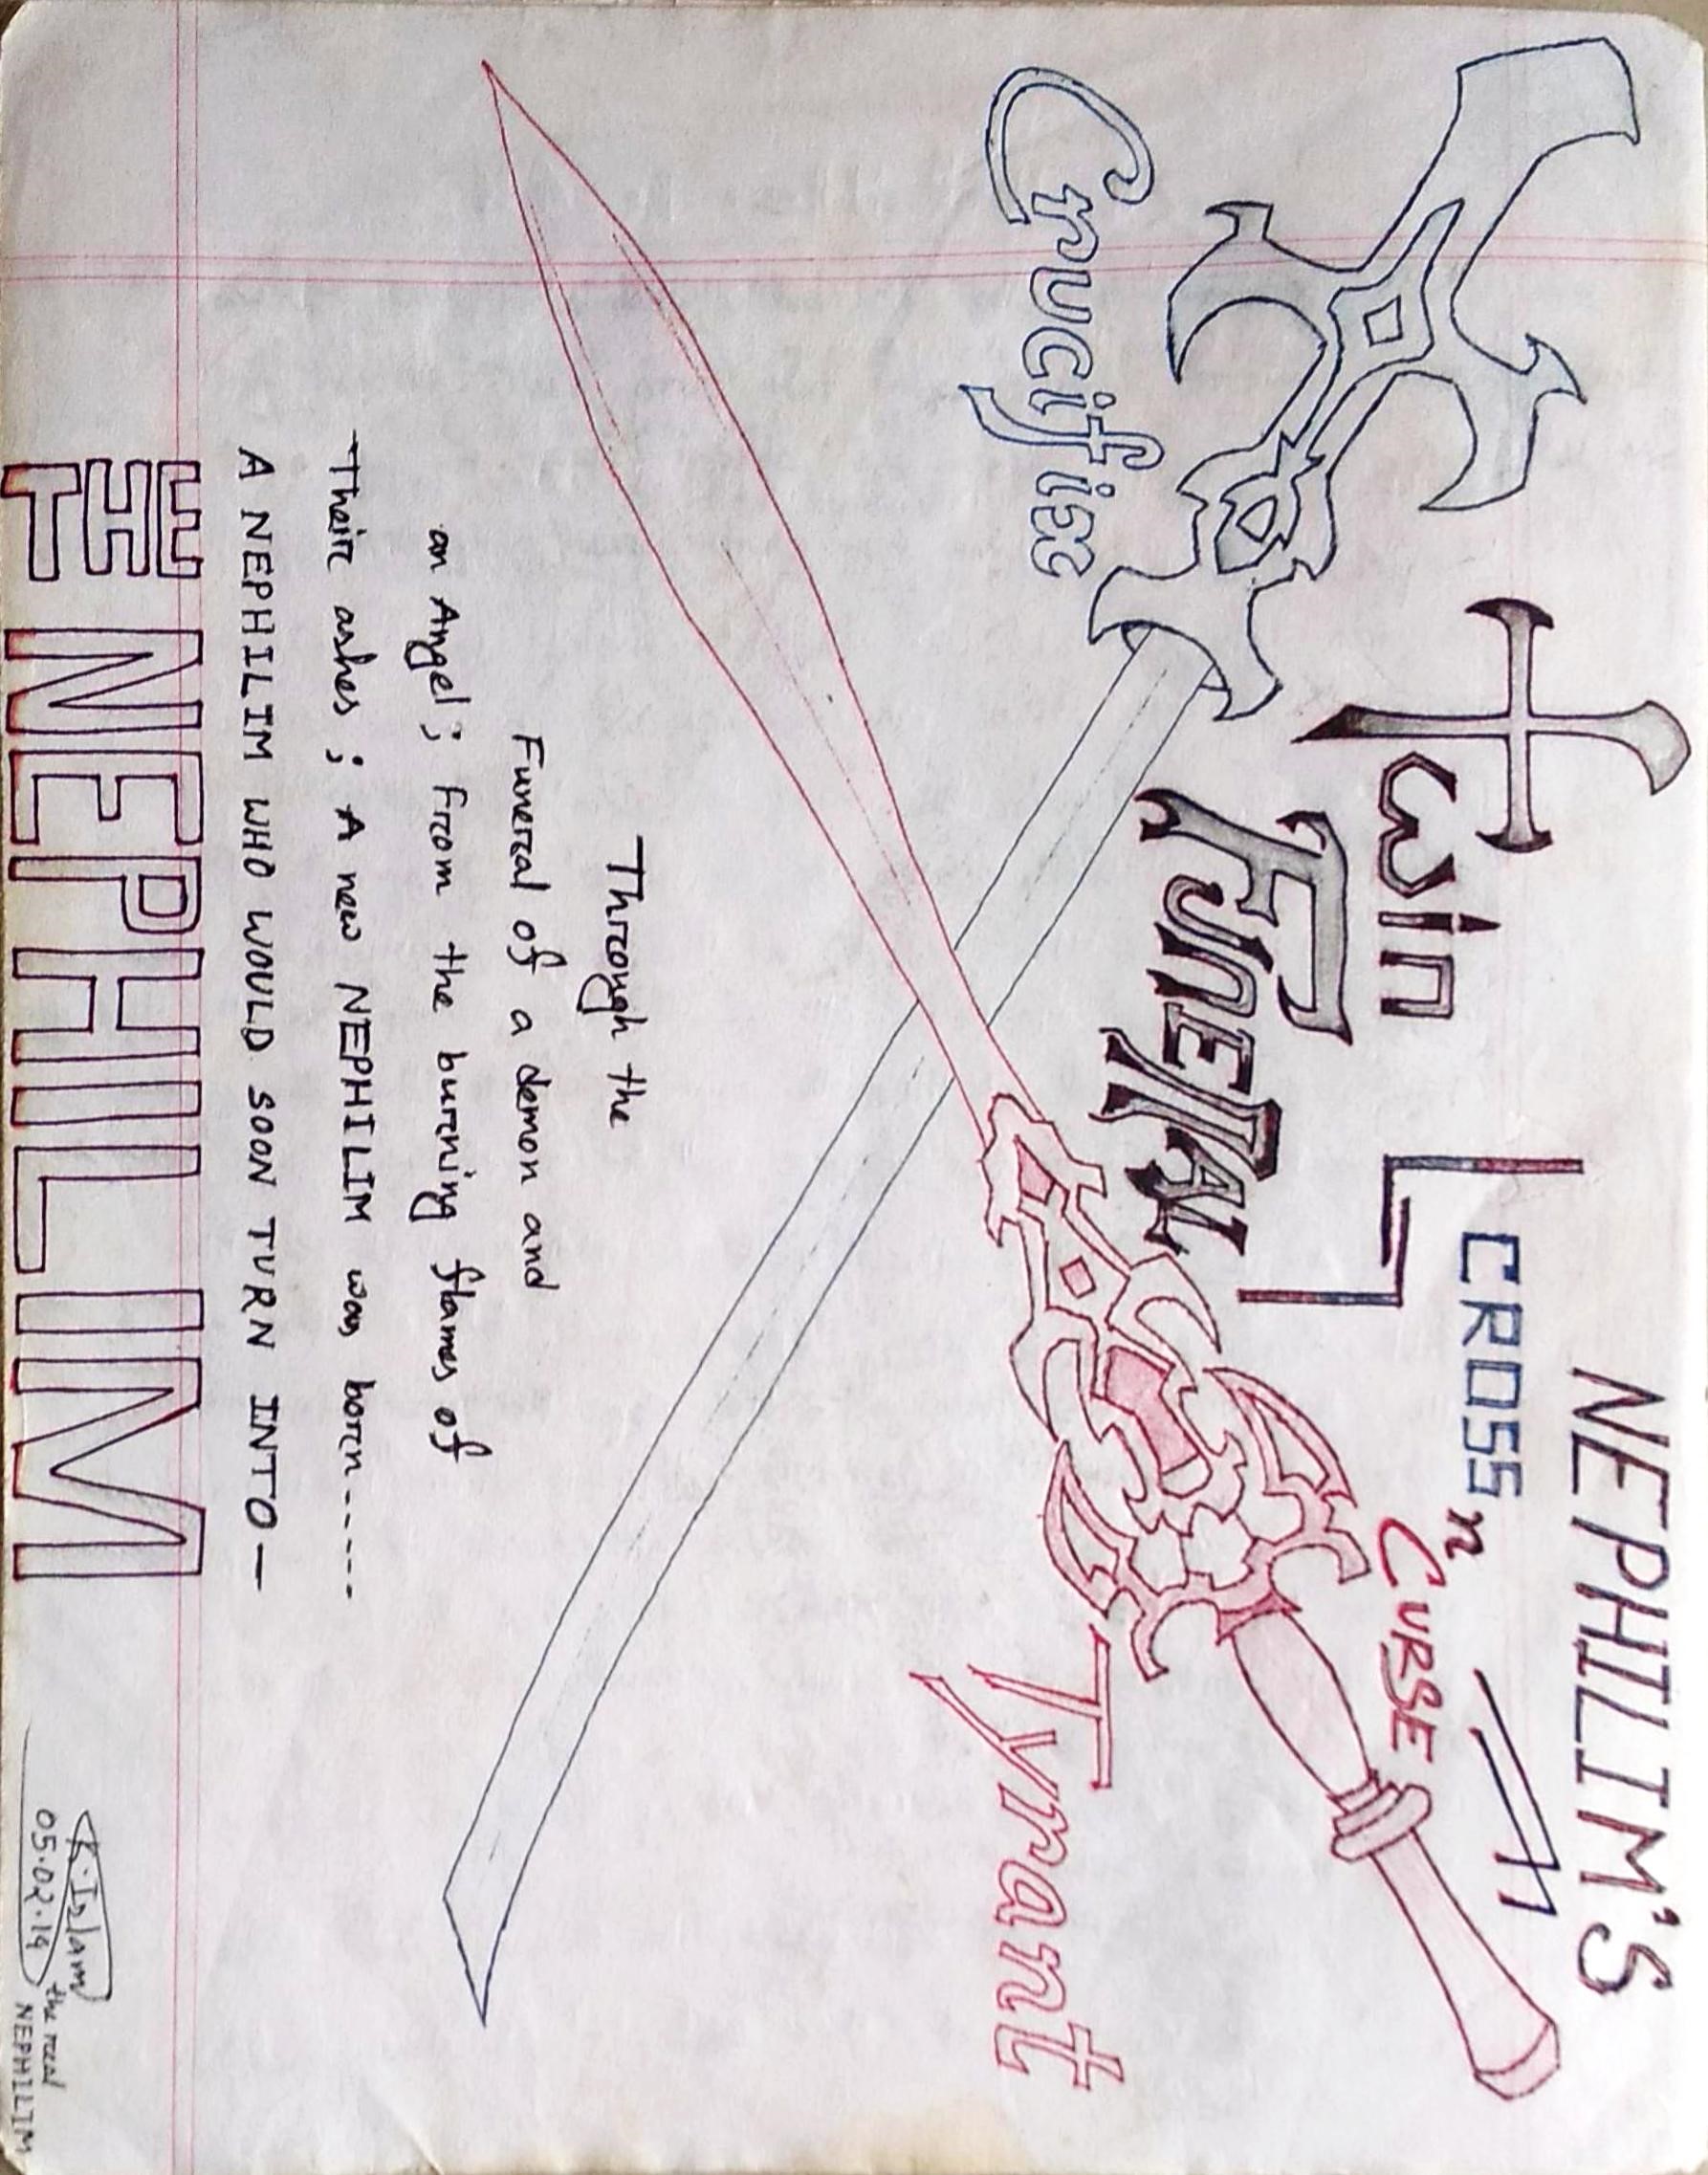 NEPHILIM'S
Twin
CROSS n
CURSE
FUNERAL
Crucifix
Tyrant
Through the
Funeral of a demon and
an Angel; from the burning flames of
Their ashes; A new NEPHILIM was born-----
A NEPHILIM WHO WOULD SOON TURN INTO—
THE NEPHILIM
K.Islam
05.02.14
the real
NEPHILIM